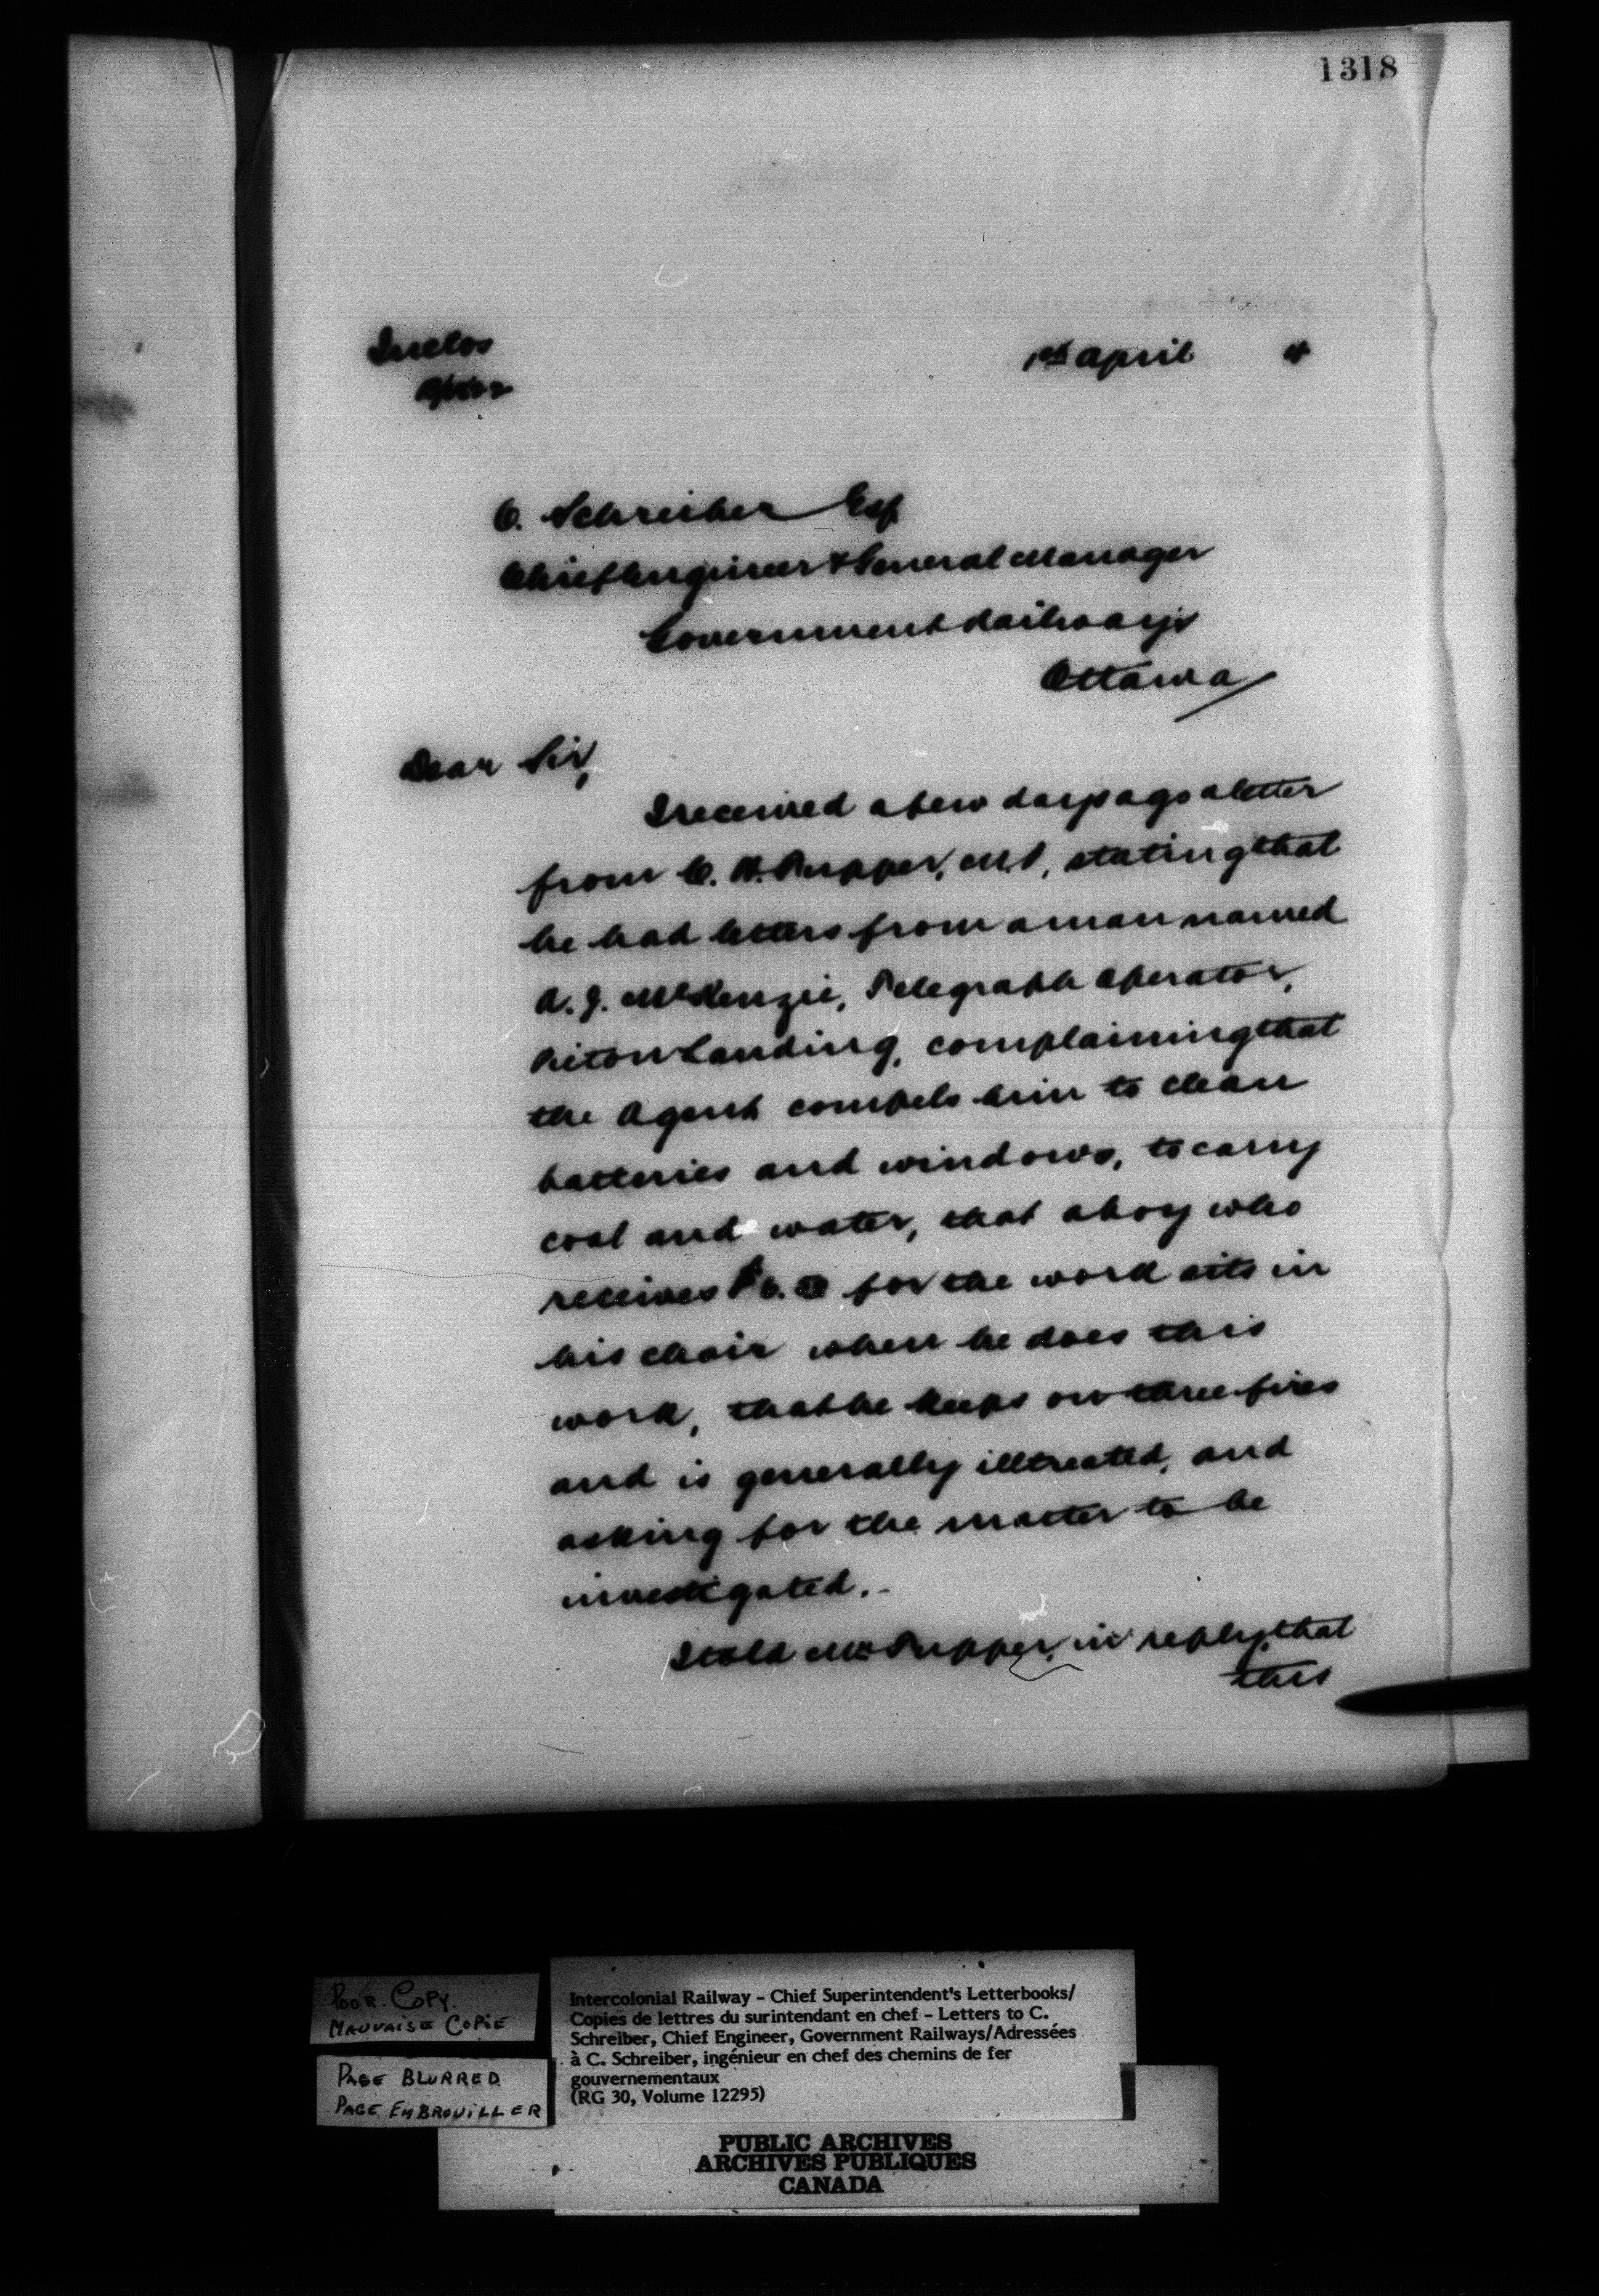 1318
Inclos
1st April 4
C. Schreiber Esq
Chief Engineer & General Manager
Government Railways
Ottawa
Dear Sir,
I received a few days ago a letter
from C. H. Tupper, M.P, stating that
he had letters from a man named
A. J. McKenzie, Telegraph Operator,
Pictou Landing, complaining that
the Agent compels him to clean
batteries and windows, to carry
coal and water, that a boy who
receives $6.00 for the work sits in
his chair when he does this
work, that he keeps on three fires
and is generally illtreated, and
asking for the matter to be
investigated.-
I told Mr Tupper, in reply, that
this
POOR. COPY.
MAUVAISE COPIE
PAGE BLURRED
PAGE EMBROUILLER
Intercolonial Railway – Chief Superintendent's Letterbooks/
Copies de lettres du surintendant en chef – Letters to C.
Schreiber, Chief Engineer, Government Railways/Adressées
à C. Schreiber, ingénieur en chef des chemins de fer
gouvernementaux
(RG 30, Volume 12295)
PUBLIC ARCHIVES
ARCHIVES PUBLIQUES
CANADA